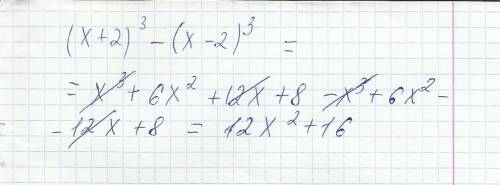 (x+2)³ − (x−2)³ =
= x³ + 6x² + 12x + 8 − x³ + 6x² −
− 12x + 8 = 12x² + 16